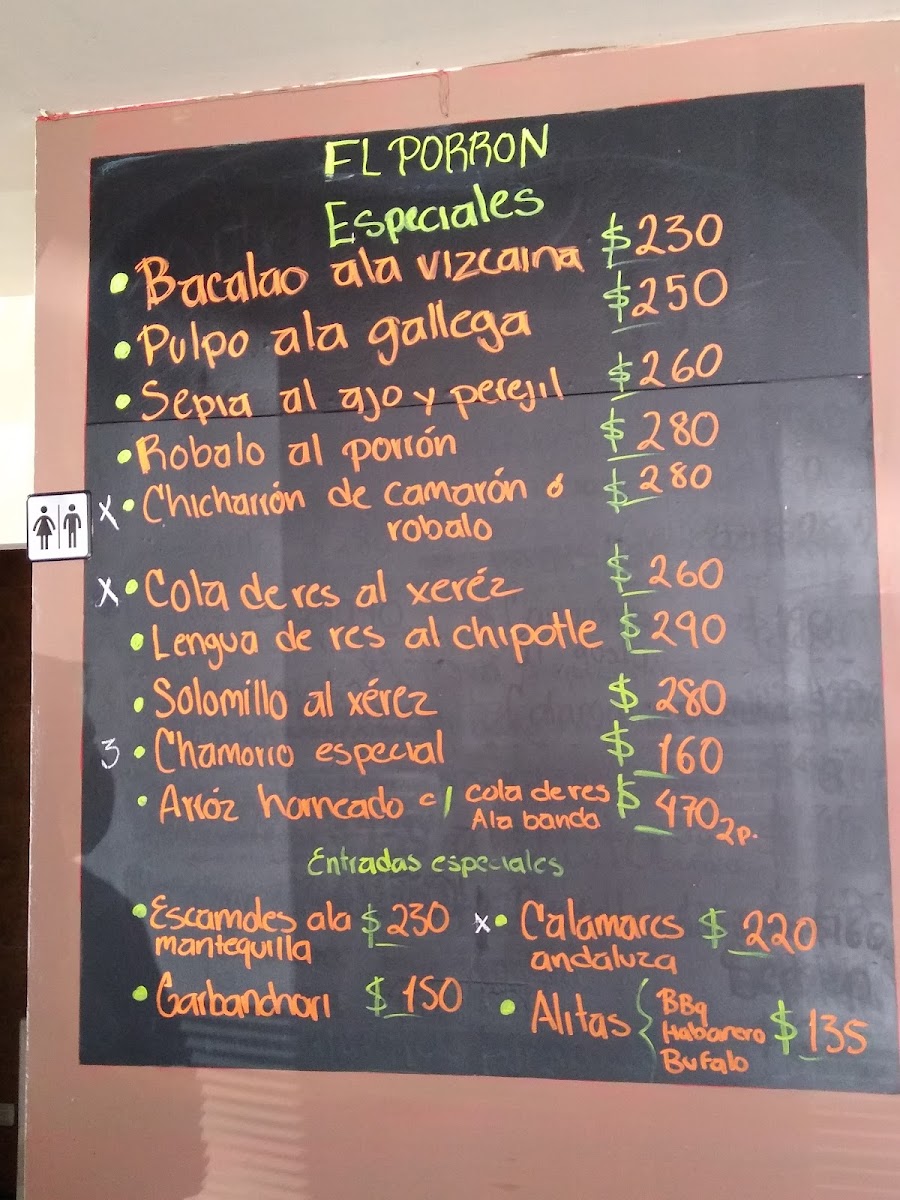 EL PORRON
Especiales
• Bacalao ala vizcaina $230
• Pulpo ala gallega $250
• Sepia al ajo y perejil $260
• Robalo al porrón $280
x • Chicharrón de camarón ó $280
robalo
x • Cola de res al xeréz $260
• Lengua de res al chipotle $290
• Solomillo al xérez $280
3 • Chamorro especial $160
• Arróz horneado c/ cola de res $470 2p.
Ala banda
Entradas especiales
• Escamoles ala $230
mantequilla
x • Calamares $220
andaluza
• Garbanchori $150
• Alitas { BBq $135
Habanero
Bufalo